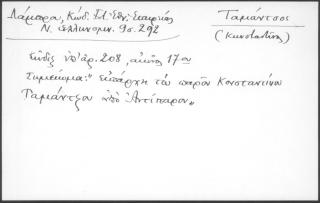 Λάμπρου, Κώδ. Ἱστ. Ἐθν. Ἑταιρείας
Ν. Ἑλληνομν. 9 σ. 292
Ταμάντσος
(Κωνσταντῖνος)
Κῶδιξ ὑπ' ἀρ. 208, αἰῶνος 17ου
Σημείωμα: "Εὑπάρχη τὸ παρὸν Κονσταντίνου
Ταμάντζου ἀπὸ Ἀντίπαρον"